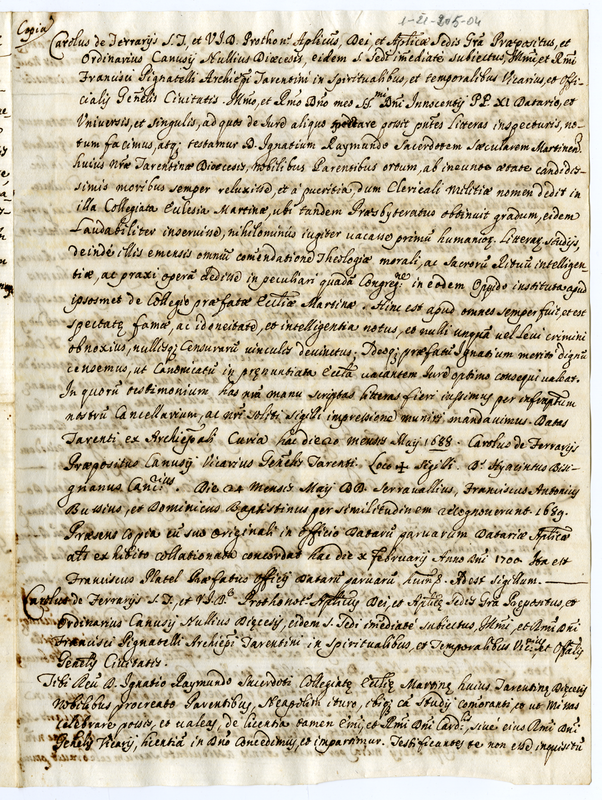 1-21-205-04
Copia
Carolus de Ferrarijs S.T., et V.I.D. Prothon: Aplicus, Dei, et Aplicæ Sedis Grã Præpositus, et
Ordinarius Canusij Nullius Diœcesis, eidem S. Sedi imediatè subiectus, Illmi, et Rmi
Francisci Pignatelli Archiepi Tarentini in Spiritualibus, et temporalibus Vicarius, et Offi-
cialis Genelis Civitatis. Illmo, et Rmo Dno meo Dni Innocentij PP. XI Datario, et
Universis, et singulis, ad quos de Jure aliquo spectare possit pntes litteras inspecturis, no-
tum facimus, atq; testamur D. Ignatium Raymundo Sacerdotem Sæcularem Martinen
huius nræ Tarentinæ Diœcesis, Nobilibus Parentibus ortum, ab ineunte ætate candidis-
simis moribus semper reluxisse, et à pueritia, dum Clericali Militiæ nomen dedit in
illa Collegiata Ecclesia Martinæ, ubi tandem Præsbyteratus obtinuit gradum, eidem
Laudabiliter inservisse, nihilominus iugiter vacasse primũ humanior. Litterar. studijs,
deinde illis emensis omniũ comendatione Theologiæ morali, ac Sacrorũ Rituũ intelligen-
tiæ, ac praxi operã dedisse in peculiari quadã Congregne in eodem Oppido instituta apud
ipsosmet de Collegio præfatæ Eccliæ Martinæ. Hinc est apud omnes semper fuit, et est
spectatæ famæ, ac idoneitatis, et intelligentia notus, et nulli unquã vel levi crimini
obnoxius, nullisq; Censurarũ vinculis devinctus; Ideoq; præfatũ Ignatium meritò dignũ
censemus, ut Canonicatũ in prænuntiata Ecclia vacantem Jure optimo consequi valeat.
In quorũ testimonium has nrã manu scriptas litteras fieri iussimus per infrascriptum
nostrũ Cancellarium, ac nri soliti Sigilli impressione muniri mandavimus. Datas
Tarenti ex Archiepali Curia hac die 20 mensis Maij 1689. Carolus de Ferrarijs
Præpositus Canusij Vicarius Genelis Tarenti. Loco ✝ Sigilli. Dr Hyacintus Bisi-
gnanus Cancrius. Die 24 Mensis Maij DD. Serravallius, Franciscus Antonius
Bussius, et Dominicus Baptistinus per similitudinem recognoverunt 1689.
Præsens copia cũ suo originali in officio Datarũ parvarum Datariæ Aplicæ
alr exhibito collationata concordat hac die X Februarij Anno Dni 1700. Ita est
Franciscus Platel Præfatus Officij Datarũ parvarũ, Adest Sigillum.
Carolus de Ferrarijs S.T., et V.I.D. Prothonot: Aplicus Dei, et Aplicæ Sedis Grã Prepositus, et
Ordinarius Canusij Nullius Diœcesis, eidem S. Sedi imediatè subiectus, Illmi, et Rmi Dni
Francisci Pignatelli Archiepi Tarentini in Spiritualibus, et Temporalibus Vicrius, et Offalis
Genelis Civitatis.
Tibi Reuđ D. Ignatio Raymundo Sacerdoti Collegiatæ Eccliæ Martinæ huius Tarentinæ Diœcesis
Nobilibus procreato Parentibus, Neapolim ituro, ibiq; cã Studij comoranti, et ut Missas
celebrare possis, et valeas, de licentia tamen Emi, et Rmi Dni Cardlis, sivè eius Rmi Dni
Genelis Vicarij, licentiã in Dno concedimus, et impartimur. Testificantes te non esse inquisitũ